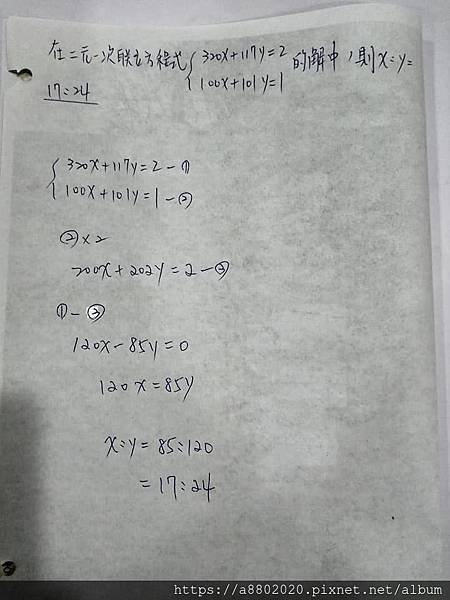 在二元一次联立方程式{320X+117Y=2 的解中,則X:Y=
100X+101Y=1
17:24
{320X+117Y=2-①
100X+101Y=1-②
②×2
200X+202Y=2-③
①-③
120X-85Y=0
120X=85Y
X:Y=85:120
=17:24
https://a8802020.pixnet.net/album